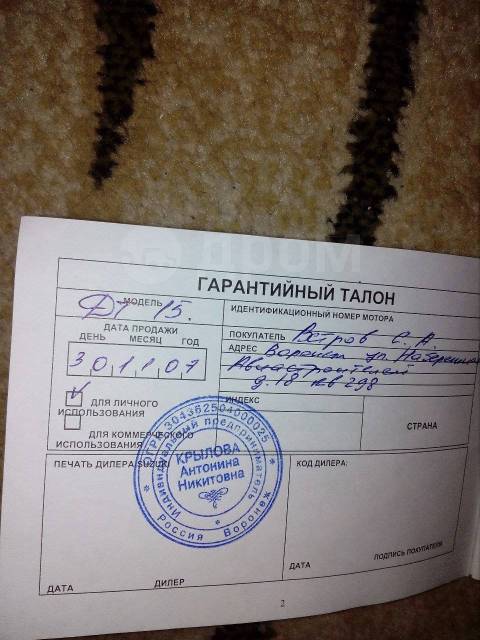 дром
ГАРАНТИЙНЫЙ ТАЛОН
МОДЕЛЬ
ДТ 15.
ИДЕНТИФИКАЦИОННЫЙ НОМЕР МОТОРА
ДАТА ПРОДАЖИ
ДЕНЬ МЕСЯЦ ГОД
30 11 07
ПОКУПАТЕЛЬ С. А.
АДРЕС Воронеж ул.
Авиастроителей
д. 18 кв 298
ИНДЕКС
СТРАНА
ДЛЯ ЛИЧНОГО
ИСПОЛЬЗОВАНИЯ
ДЛЯ КОММЕРЧЕСКОГО
ИСПОЛЬЗОВАНИЯ
ПЕЧАТЬ ДИЛЕРА SUZUKI
КОД ДИЛЕРА:
ОГРН 304362504000025
Индивидуальный предприниматель
КРЫЛОВА
Антонина
Никитовна
Россия Воронеж
ДАТА ДИЛЕР
ДАТА ПОДПИСЬ ПОКУПАТЕЛЯ
2